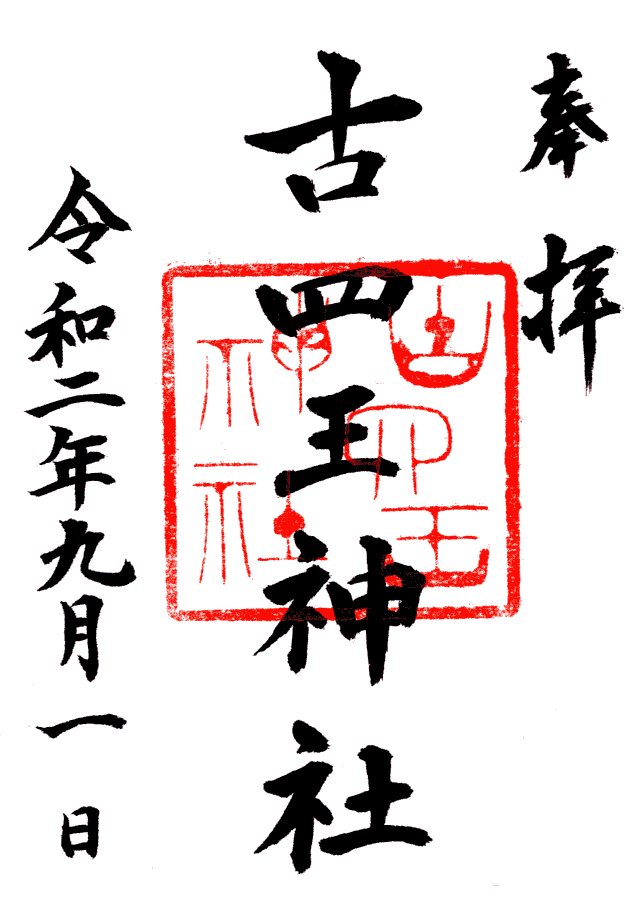 奉拝
古四王神社
古四王
神社
令和二年九月一日